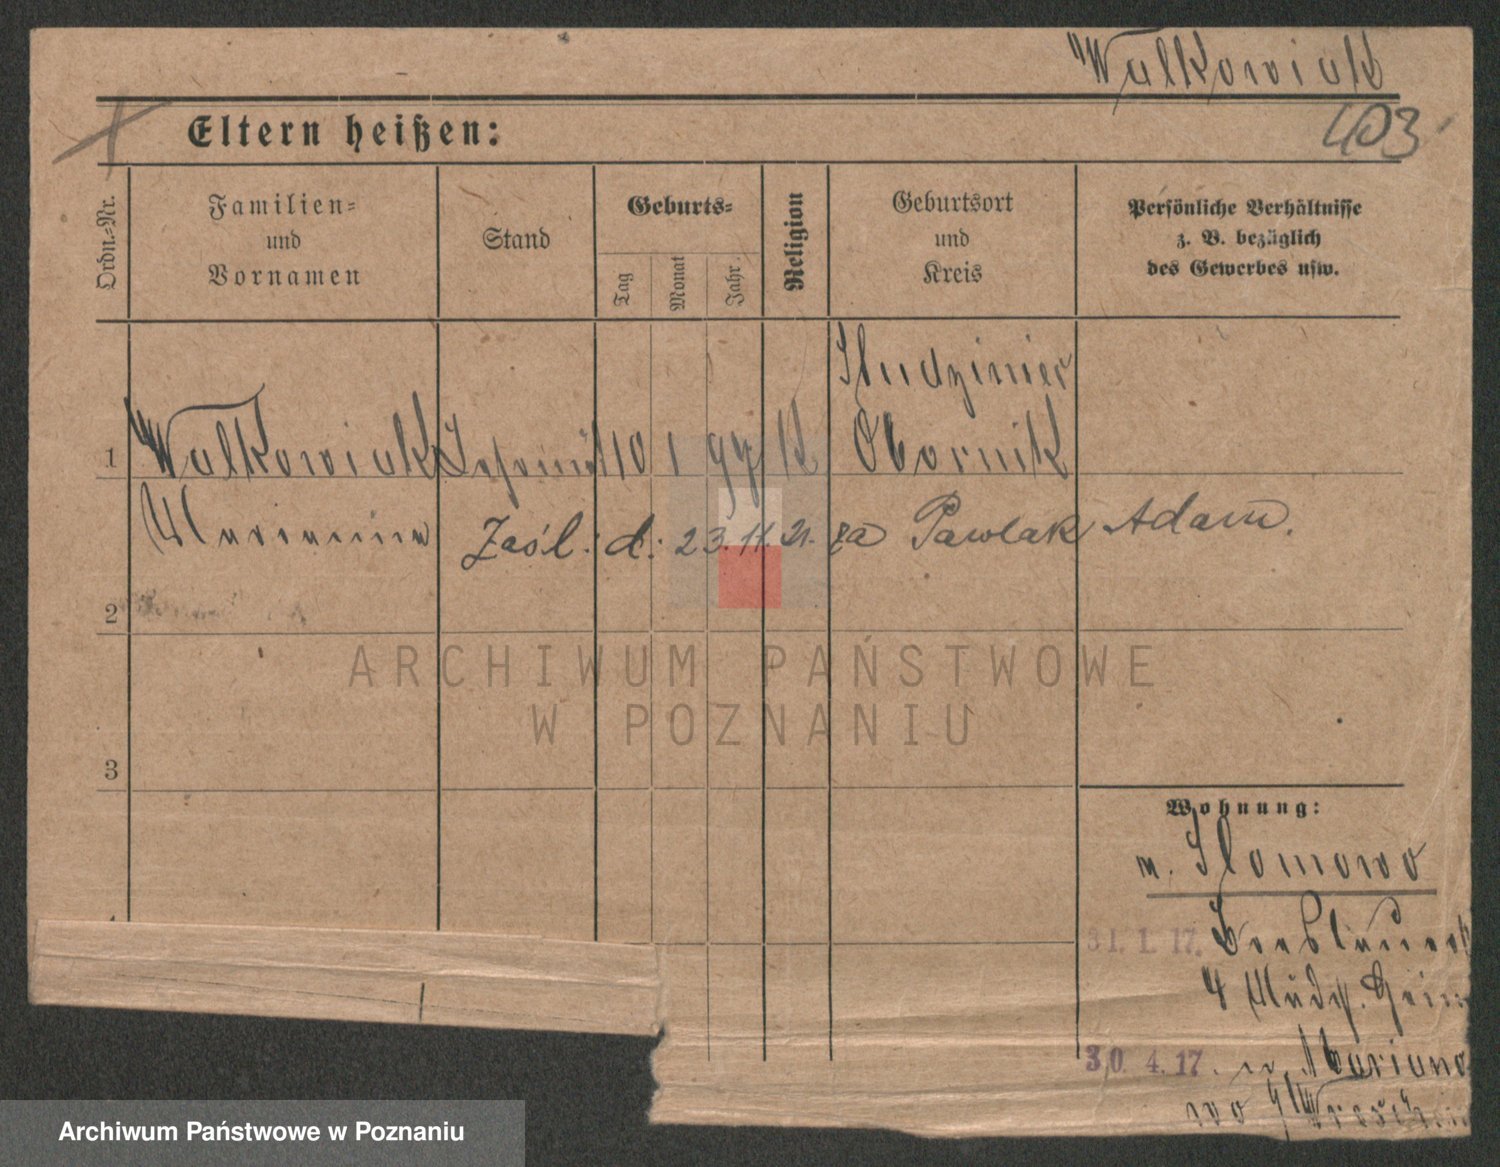 Walkowiak
403
Eltern heißen:
Ordn.-Nr.
Familien- und Vornamen
Stand
Geburts-
Tag
Monat
Jahr.
Religion
Geburtsort und Kreis
Persönliche Verhältnisse z. B. bezüglich des Gewerbes usw.
Studziniec
1 Walkowiak 10 1 97 K Obornik
Marianna
Zaśl. d. 23.11.21. za Pawlak Adam.
2
ARCHIWUM PAŃSTWOWE
W POZNANIU
3
Wohnung:
n. Slomowo
31. 1. 17.
4 Mädch. Heim
30. 4. 17. n. Mariano
wo
Archiwum Państwowe w Poznaniu